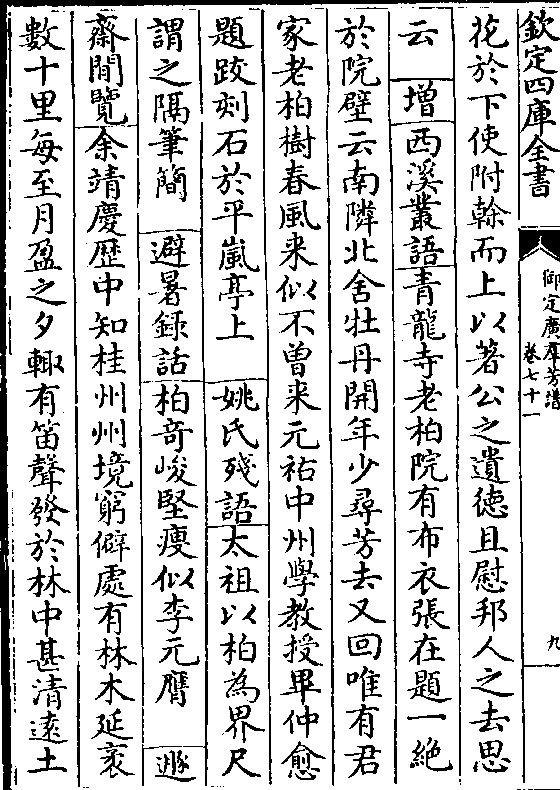 欽定四庫全書
御定廣羣芳譜
卷七十一
九
花於下使附榦而上以著公之遺徳且慰邦人之去思
云 增西溪叢語青龍寺老柏院有布衣張在題一絶
於院壁云南隣北舍牡丹開年少尋芳去又回唯有君
家老柏樹春風来似不曽来元祐中州學教授畢仲愈
題跋刻石於平嵐亭上 姚氏殘語太祖以柏為界尺
謂之隔筆簡 避暑録話柏竒峻堅瘦似李元膺 遯
齋閒覽余靖慶歴中知桂州州境窮僻處有林木延袤
數十里每至月盈之夕輙有笛聲發於林中甚清逺土